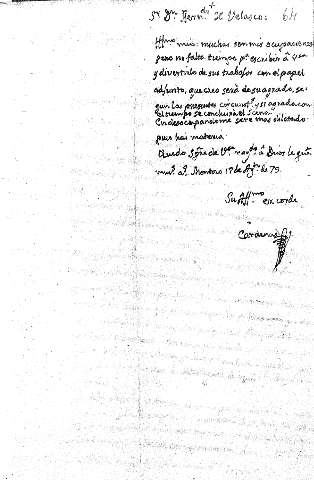 Sr Dn Fern.do X de Velasco: 64
Hmo mio: muchas son mis ocupaciones
pero no falta tiempo pa escribir à Vsa
y divertirlo de sus trabajos con el papel
adjunto, que creo serà de su agrado, se-
gun las presentes circunsts y si agrada con
el tiempo se concluirà el
En desocupandome sere mas dilatado
pues hai materia.
Quedo Sre de Vsa rogdo à Dios le gue
ms as Montoro 17 de Agto de 79.
Su Affmo
ex corde
Cardenas